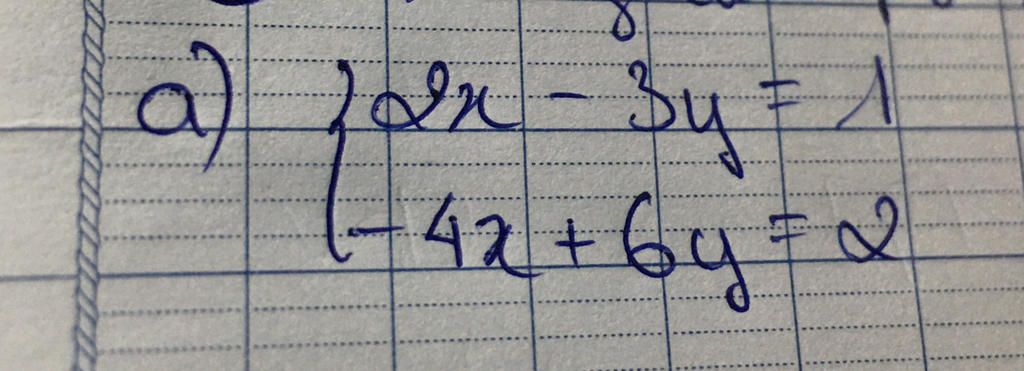 a) { 2x - 3y = 1
- 4x + 6y = 2